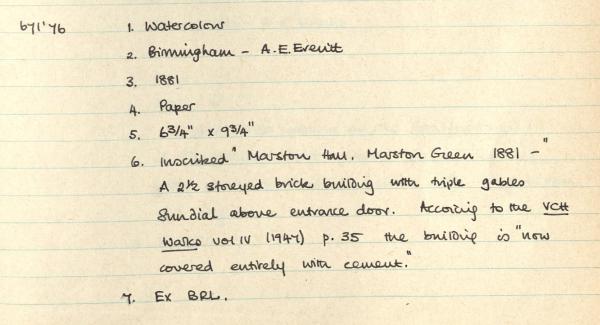 671'76 1. Watercolour
2. Birmingham - A.E. Everitt
3. 1881
4. Paper
5. 6 3/4" x 9 3/4"
6. Inscribed "Marston Hall, Marston Green 1881 -"
A 2½ storeyed brick building with triple gables
Sundial above entrance door. According to the VCH
Warks vol IV (1947) p. 35 the building is "now
covered entirely with cement."
7. Ex BRL.